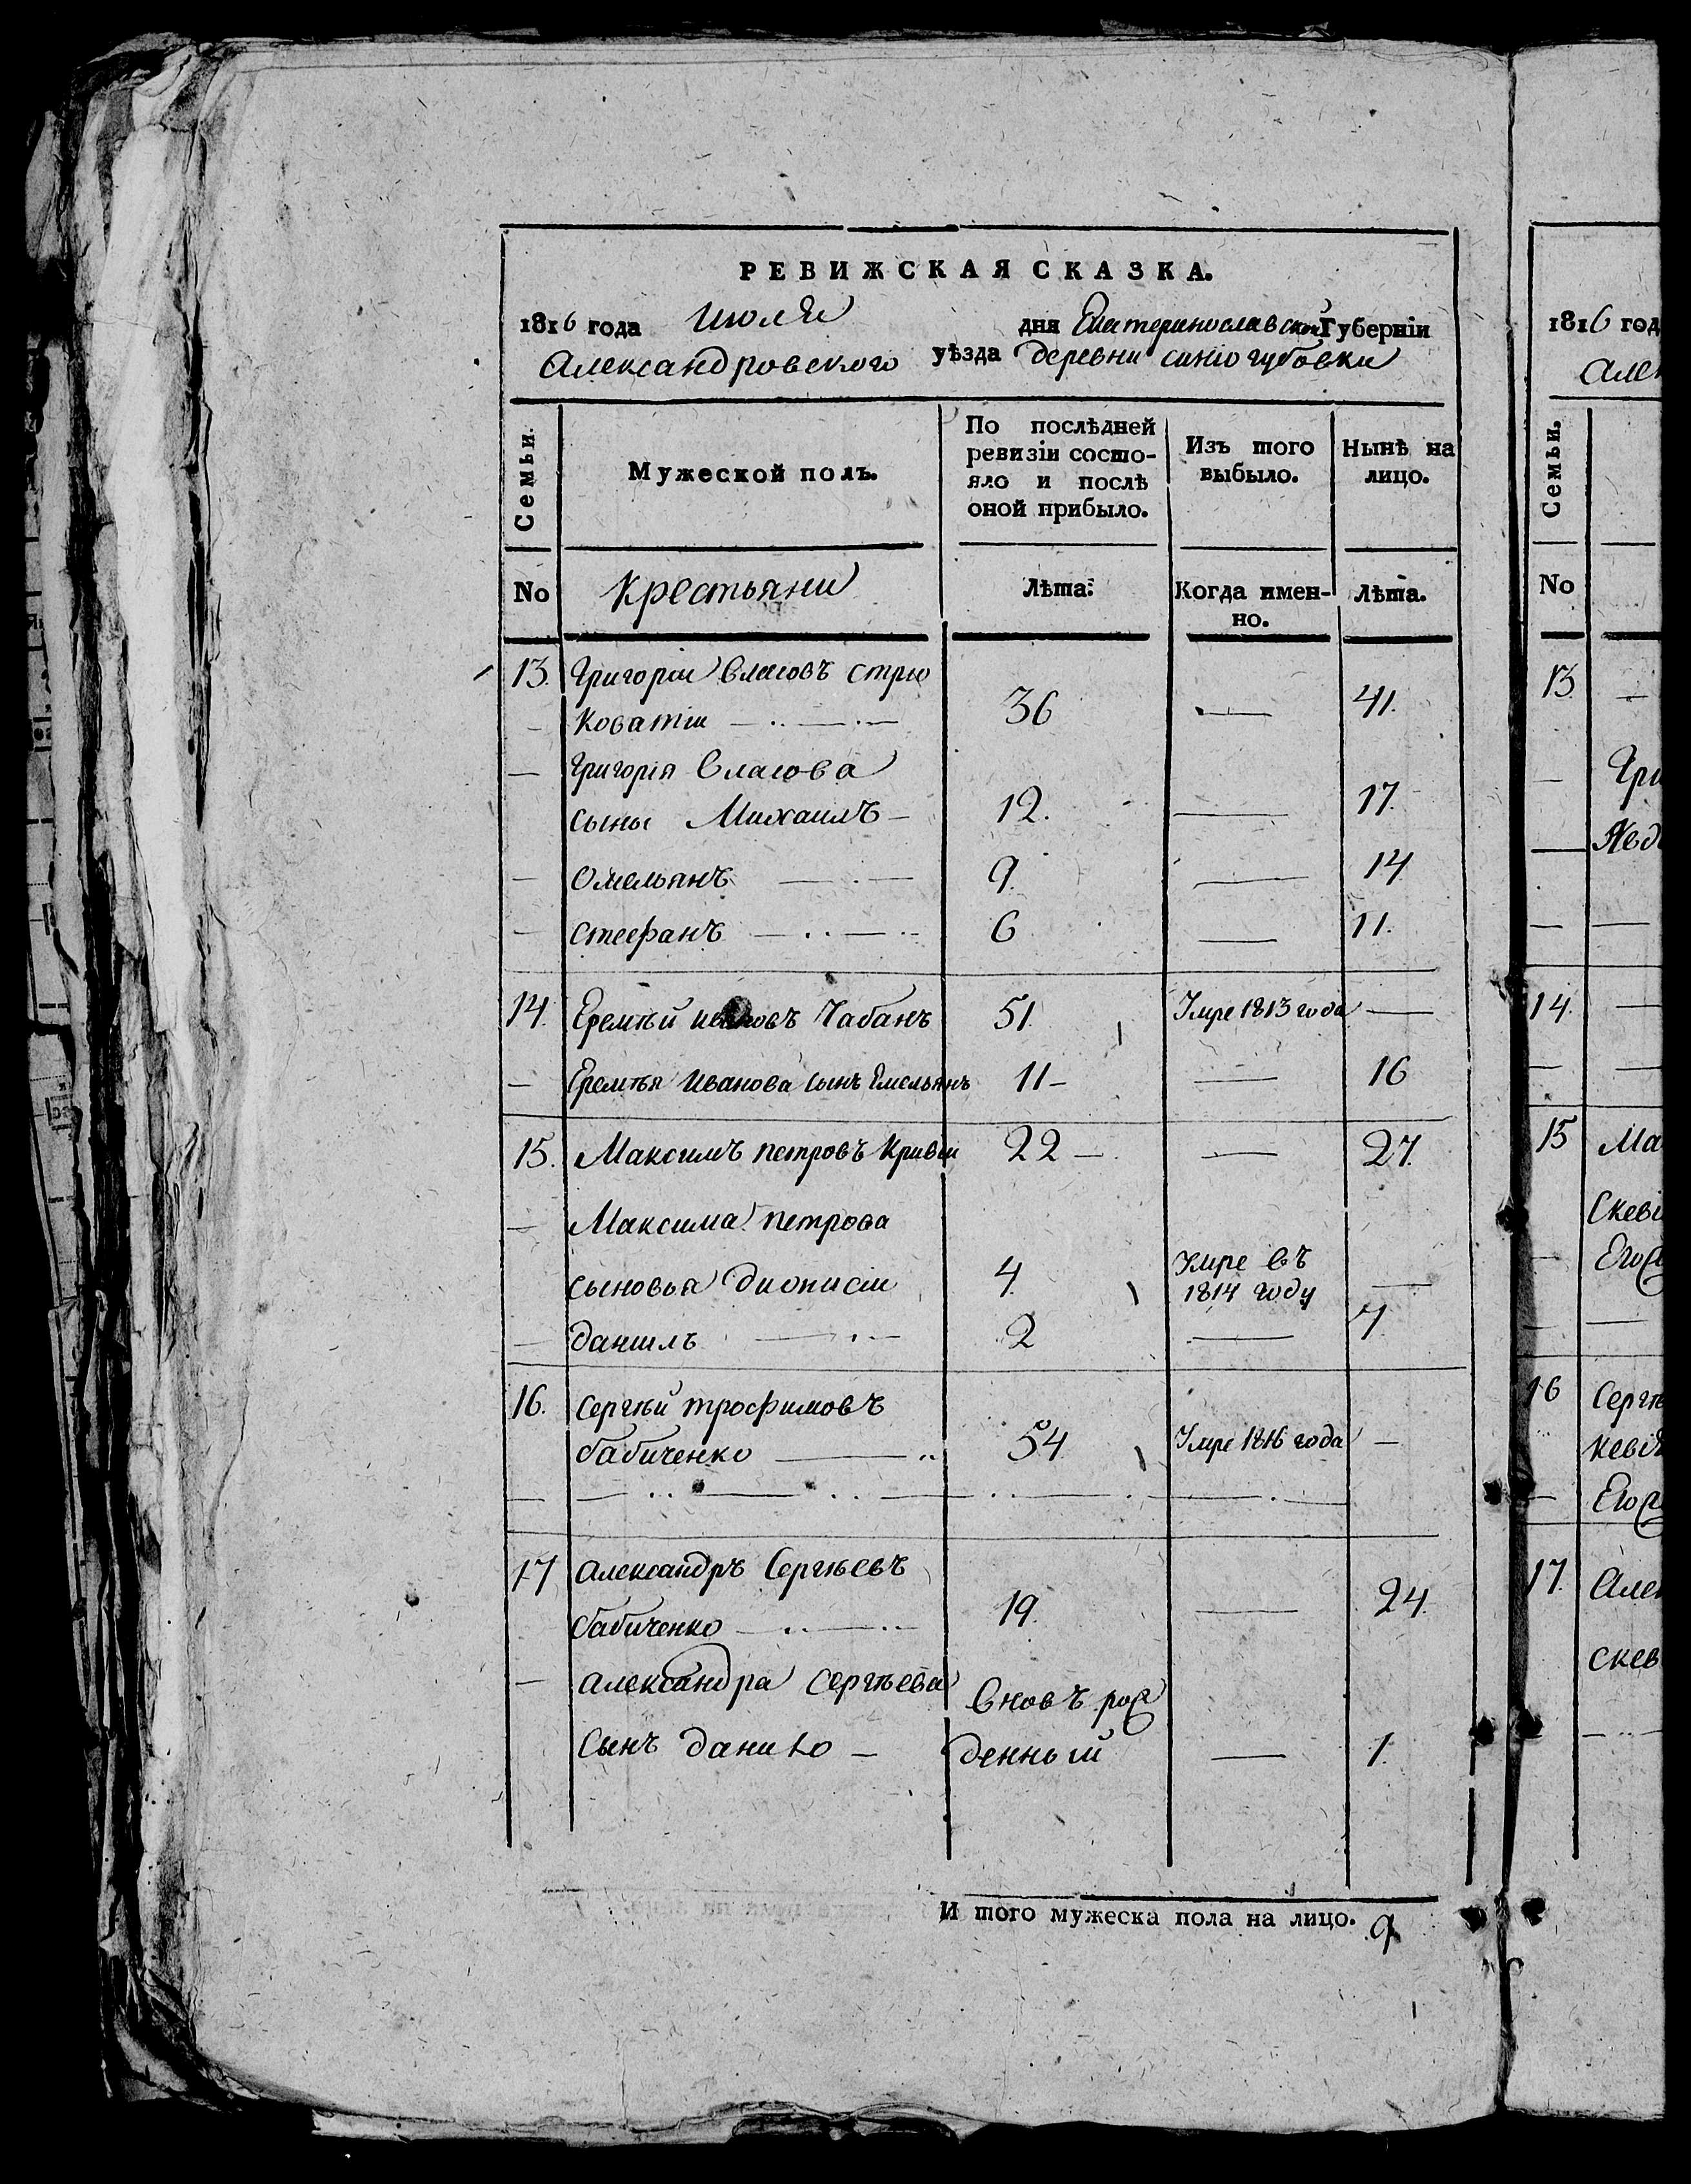 РЕВИЖСКАЯ СКАЗКА.
1816 года июля дня Екатеринославской Губерніи
Александровского уѣзда деревни синіогубовки
Семьи.
Мужеской полъ.
По послѣдней ревизіи состо-
яло и послѣ
оной прибыло.
Изъ того
выбыло.
Нынѣ на
лицо.
No Крестьяни Лѣта: Когда имен-
но. Лѣта.
13. Григории власовъ стрю
коватіи 36 — 41.
— Григорія власова
сыны Михаилъ 12. — 17.
— Омельянъ 9. — 14
— стефанъ 6 — 11.
14. Еремѣй ивановъ Чабанъ 51. Умре 1813 года —
— Еремѣя иванова сынъ Емельянъ 11 — 16
15. Максимъ петровъ Кривіи 22 — 27.
— Максима петрова
сыновья дионисіи 4. Умре въ
1814 году —
— данилъ 2 — 7
16. сергѣи трофимовъ
бабиченко 54 Умре 1816 года —
17 александръ Сергѣевъ
бабиченко 19. — 24.
— александра сергѣева вновъ рож
сынъ данило — денный — 1.
И того мужеска пола на лицо. 9
1816 год
Але
Семьи.
No
13
Гри
Явд
14.
15 Ма
Скеві
Его
16 Сергѣ
кеві
Его
17. Але
скев